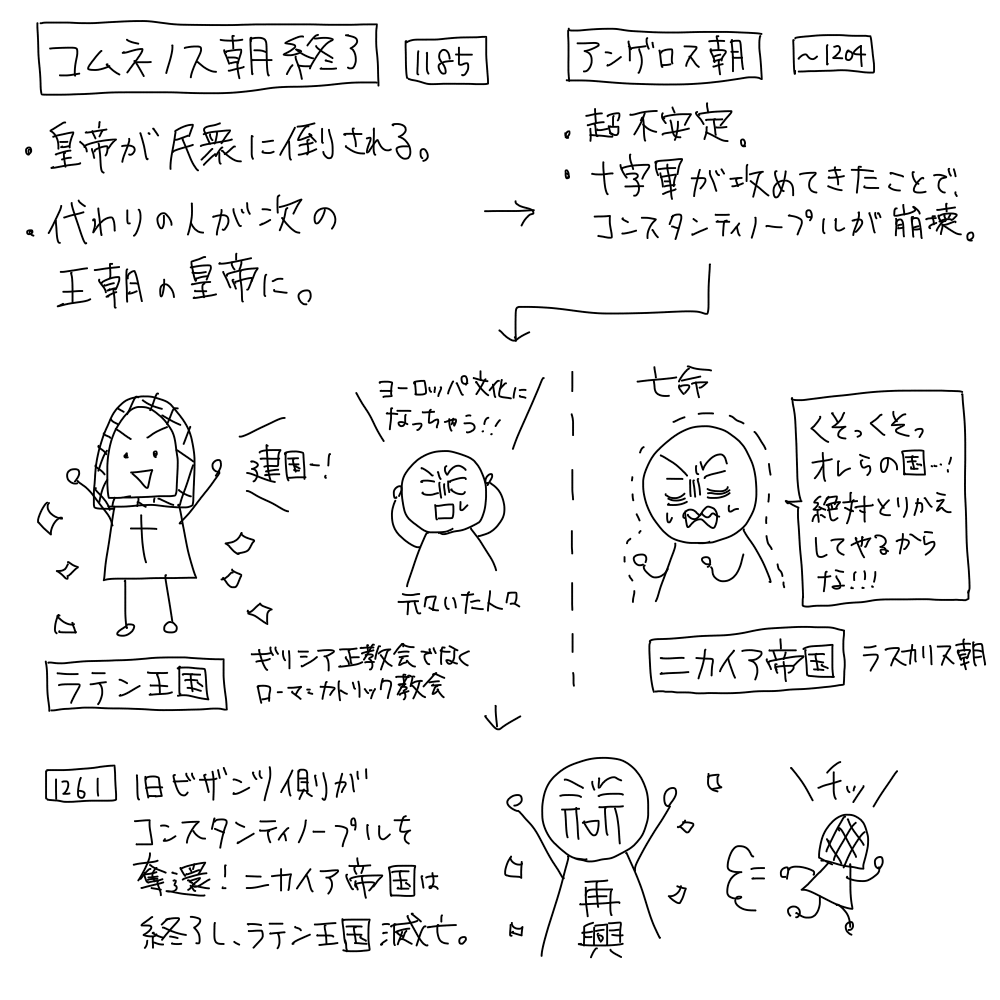 コムネノス朝終了
1185
・皇帝が民衆に倒される。
・代わりの人が次の
王朝の皇帝に。
→
アンゲロス朝
~1204
・超不安定。
・十字軍が攻めてきたことで、
コンスタンティノープルが崩壊。
建国ー!
ヨーロッパ文化に
なっちゃう!!
元々いた人々
ラテン王国
ギリシア正教会でなく
ローマ=カトリック教会
亡命
くそっくそっ
オレらの国…!
絶対とりかえ
してやるから
な!!!
ニカイア帝国
ラスカリス朝
1261
旧ビザンツ側が
コンスタンティノープルを
奪還!ニカイア帝国は
終了し、ラテン王国滅亡。
再
興
チッ